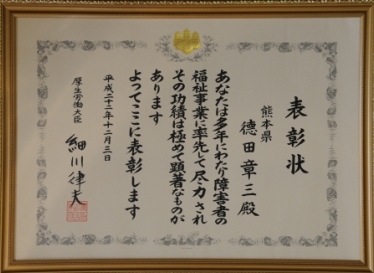 表彰状
熊本県
德田章三殿
あなたは多年にわたり障害者の
福祉事業に率先して尽力され
その功績は極めて顕著なものが
あります
よってここに表彰します
平成二十二年十二月三日
厚生労働大臣
細川律夫